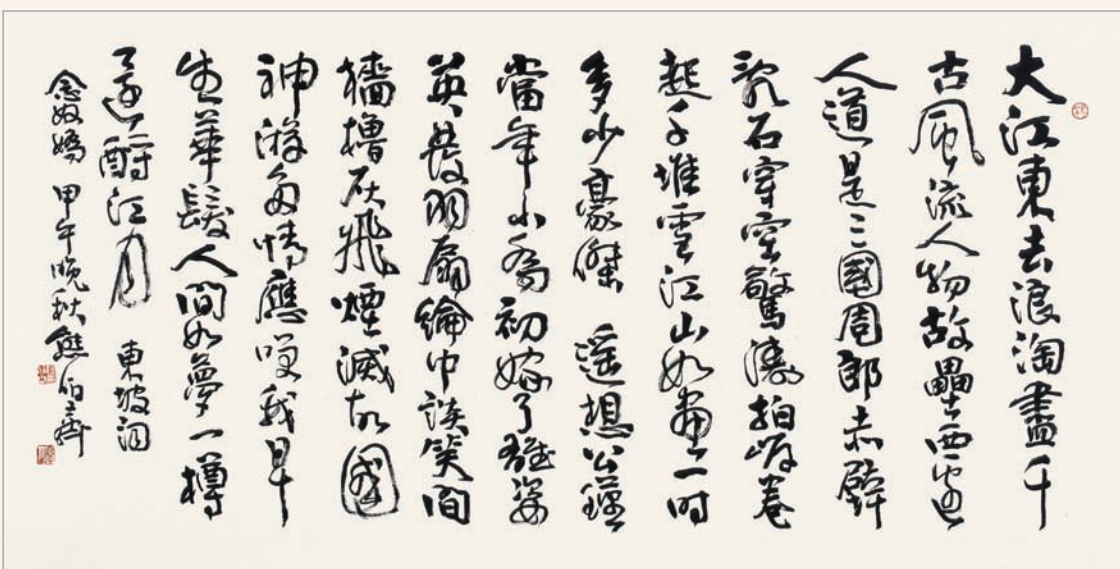 大江東去浪淘盡千
古風流人物故壘西邊
人道是三國周郎赤壁
亂石穿空驚濤拍岸卷
起千堆雪江山如畫一時
多少豪傑 遥想公瑾
當年小喬初嫁了雄姿
英發羽扇綸巾談笑間
檣櫓灰飛煙滅故國
神游多情應笑我早
生華髮人間如夢一樽
還酹江月 東坡詞
念奴嬌 甲午晚秋熊伯齊